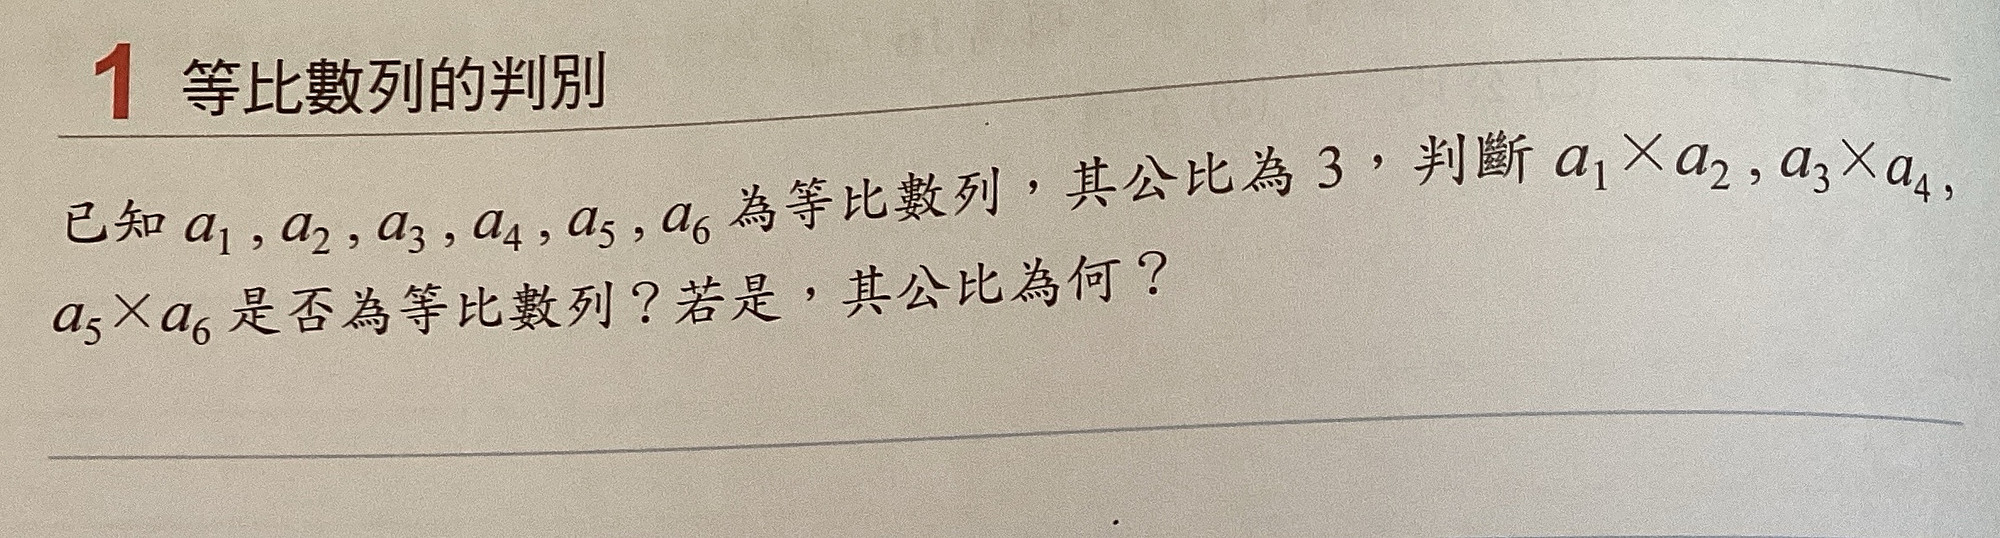 1 等比數列的判別
已知 a₁ , a₂ , a₃ , a₄ , a₅ , a₆ 為等比數列，其公比為 3，判斷 a₁×a₂ , a₃×a₄ ,
a₅×a₆ 是否為等比數列？若是，其公比為何？